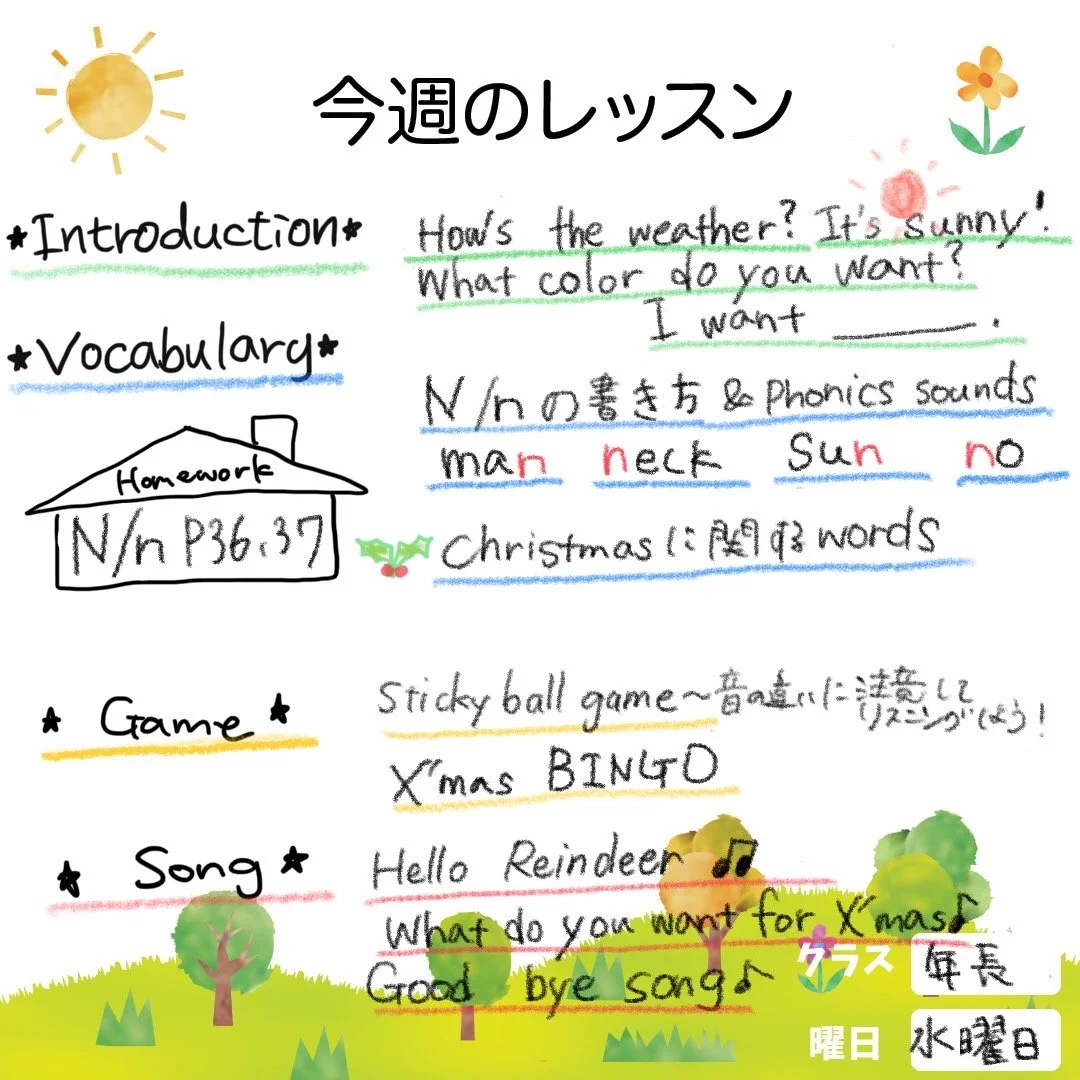 今週のレッスン
*Introduction*
How's the weather? It's sunny!
What color do you want?
I want ______.
*Vocabulary*
N/nの書き方 & Phonics sounds
man neck sun no
Christmasに関するwords
Homework
N/n P36.37
* Game *
Sticky ball game〜音の違いに注意して
リスニングしよう!
X'mas BINGO
* Song *
Hello Reindeer ♫
What do you want for X'mas♪
Good bye song♪
クラス 年長
曜日 水曜日